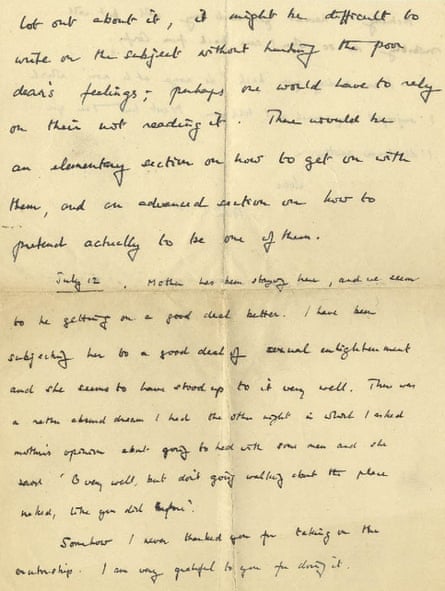 lot out about it, it might be difficult to
write on the subject without hurting the poor
dears's feelings; perhaps one would have to rely
on their not reading it. There would be
an elementary section on how to get on with
them, and an advanced section on how to
pretend actually to be one of them.
July 12. Mother has been staying here, and we seem
to be getting on a good deal better. I have been
subjecting her to a good deal of sexual enlightenment
and she seems to have stood up to it very well. There was
a rather absurd dream I had the other night in which I asked
mother's opinion about going to bed with some men and she
said 'O very well, but don't going walking about the place
naked, like you did before'.
Somehow I never thanked you for taking on the
executorship. I am very grateful to you for doing it.